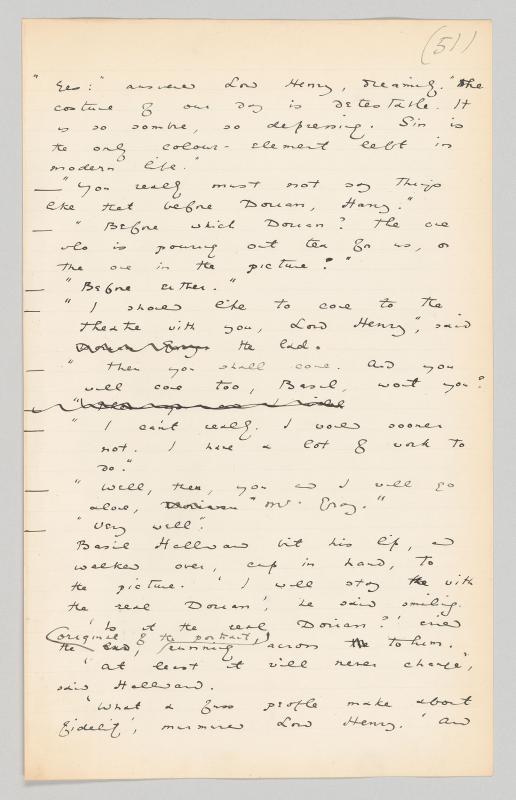 (51)
"Yes:" answered Lord Henry, dreamily. "The
costume of our day is detestable. It
is so sombre, so depressing. Sin is
the only colour-element left in
modern life."
— "You really must not say things
like that before Dorian, Harry."
— "Before which Dorian? The one
who is pouring out tea for us, or
the one in the picture?"
— "Before either."
— "I should like to come to the
theatre with you, Lord Henry", said
Dorian Gray. the lad.
— "Then you shall come. And you
will come too, Basil, won't you?
— "I can't really. I would sooner
not. I have a lot of work to
do."
— "Well, then, you and I will go
alone, Dorian "Mr. Gray."
— "Very well".
Basil Hallward bit his lip, and
walked over, cup in hand, to
the picture. 'I will stay with
the real Dorian', he said smiling.
'Is it the real Dorian?' cried
original of the portrait,
the lad, running across to him.
'at least it will never change",
said Hallward.
"What a fuss people make about
fidelity', murmured Lord Henry. 'And